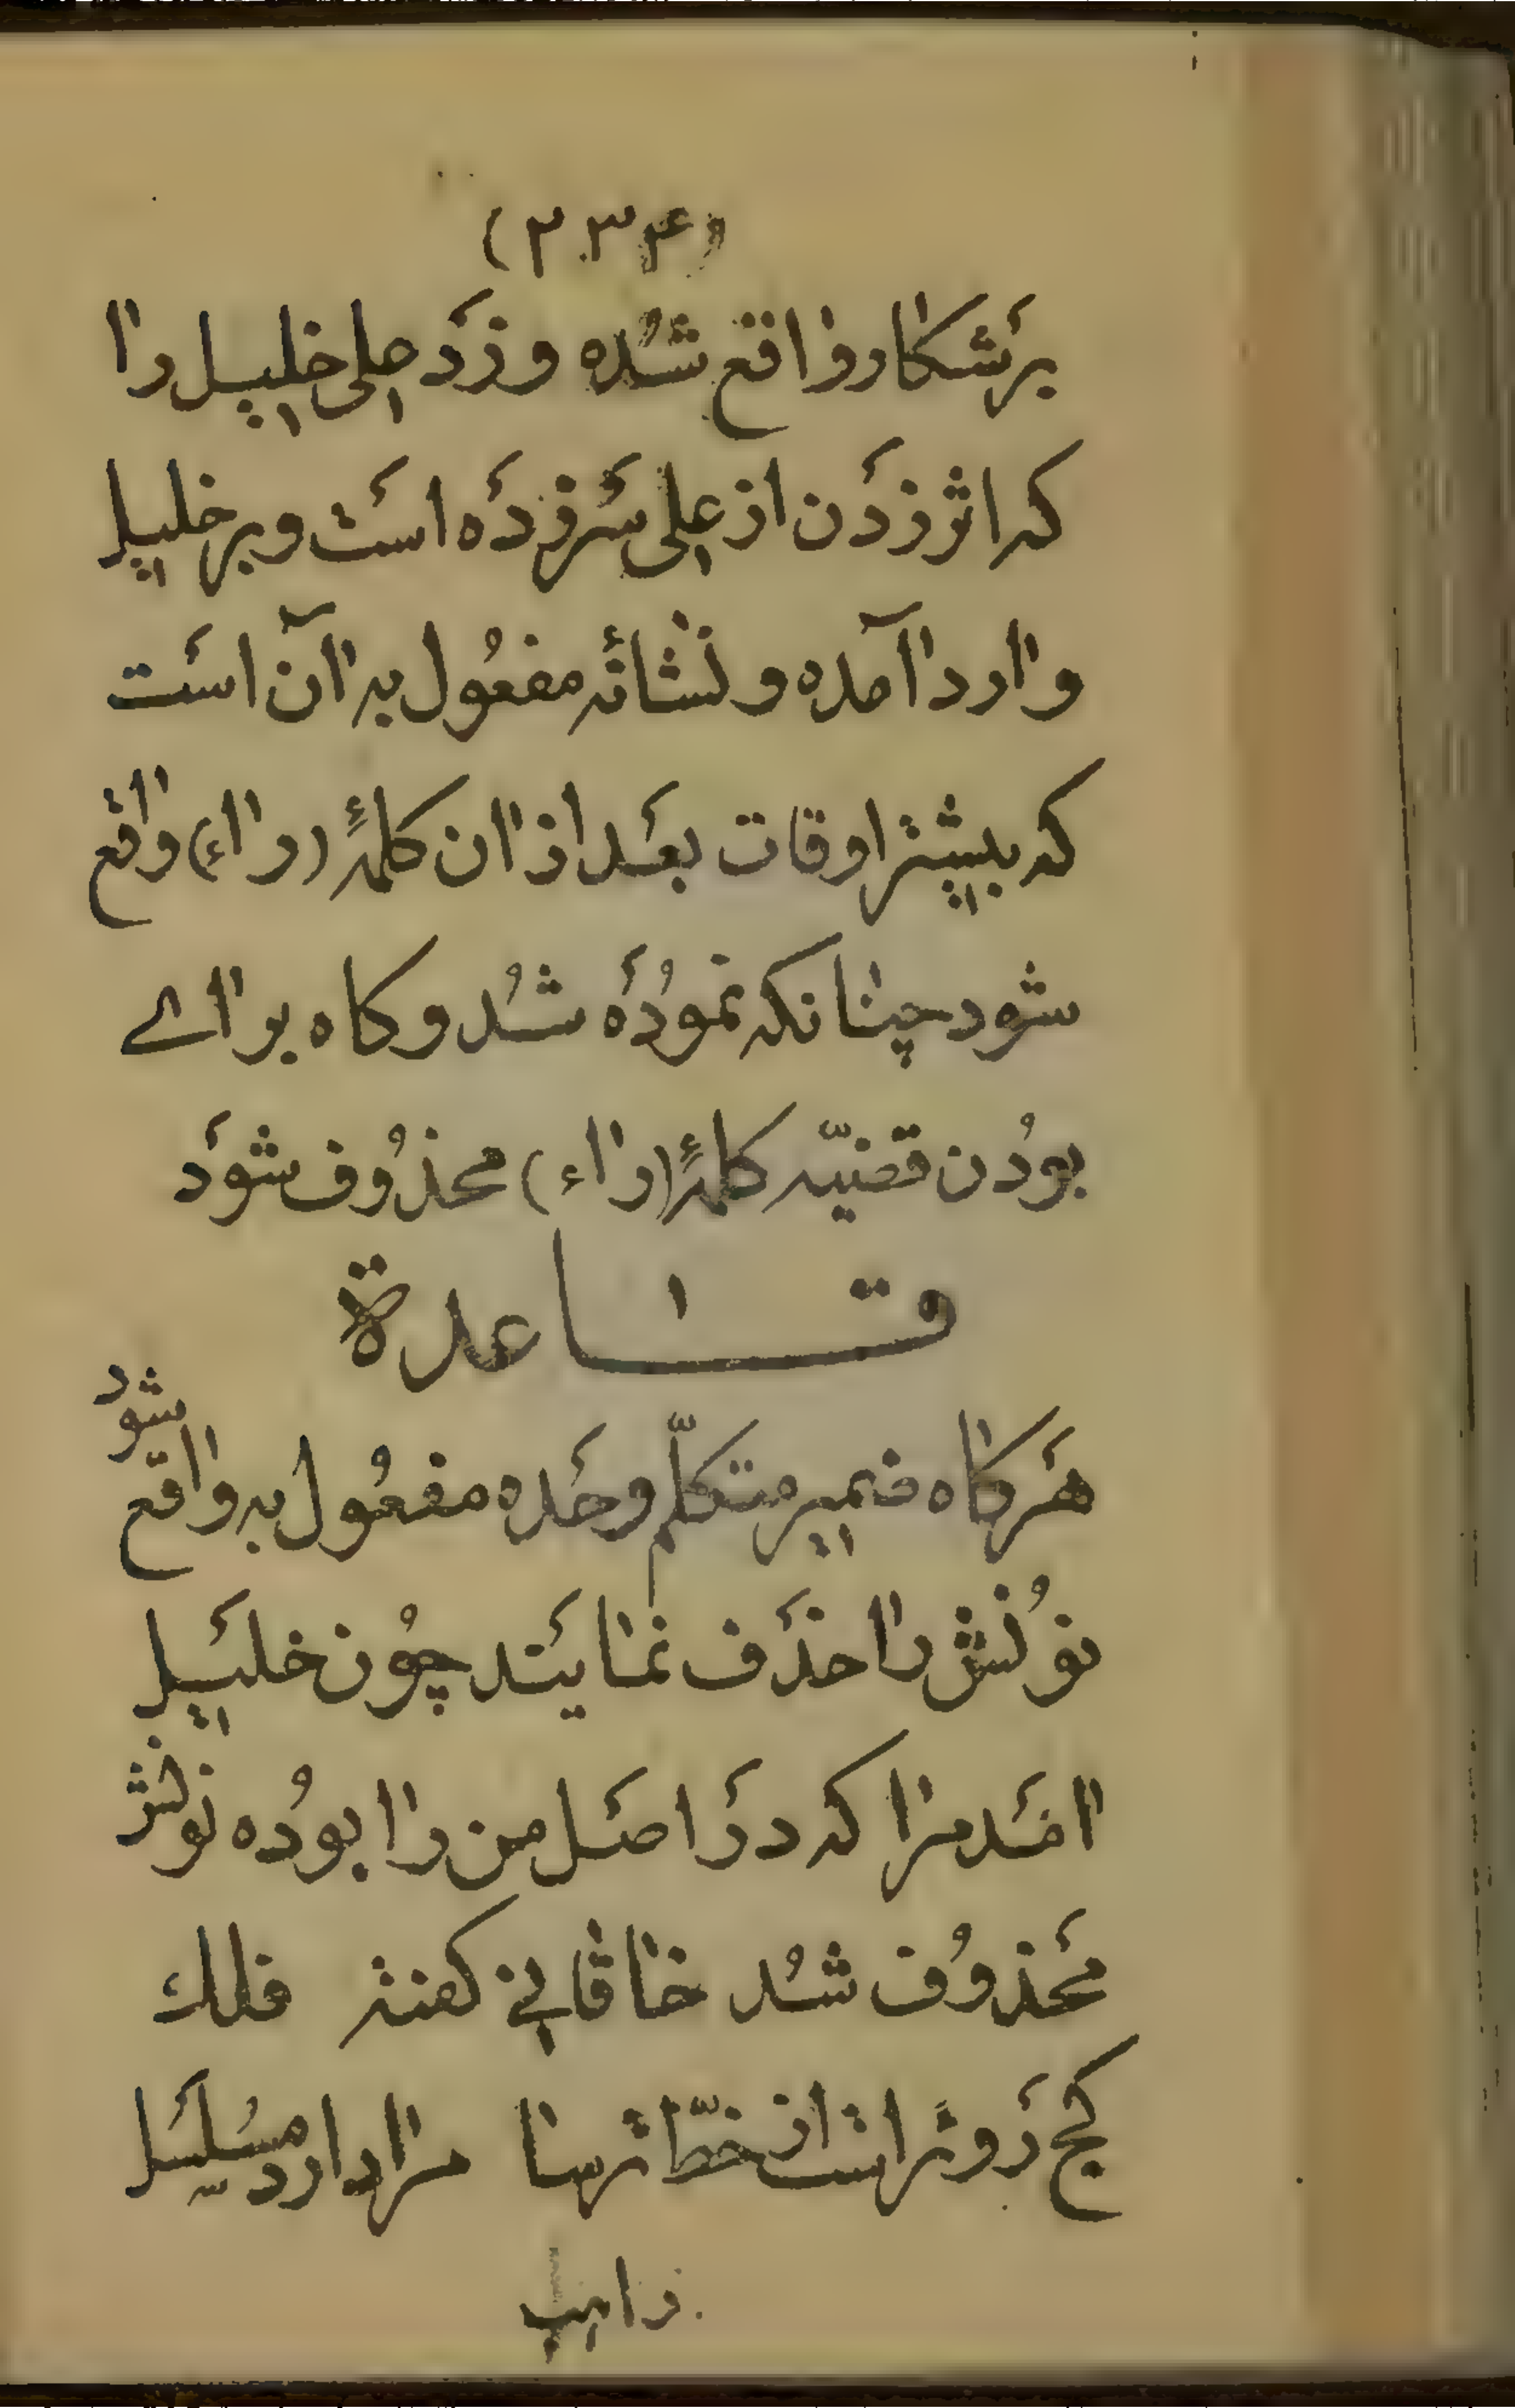 (۲۳۴)
بَرشکار واقع شُده و زَد علی خلیل را
که اثر زدَن از علی سَر زدَه است و بر خلیل
وارد آمَده و نشانه مفعُول به آن است
که بیشتر اوقات بعَد از ان کلمهٔ (راء) واقع
شود چنانکه نمودَه شُد و کاه براے
بودُن قضیّه کلمهٔ (راء) محذوُف شودَ
قاعدة
هَرکاه ضمیر متکلّم وحَده مفعُول به واقع شود
نوُنش را حذَف نمایَند چوُن خلیَل
امَد مرا که درَ اصَل من را بوُده نونش
مَحذوُف شُد خاقانی کفته فلك
کج رَوتر است از خطّ ترسا مرا دارد مُسلسَل
راهب